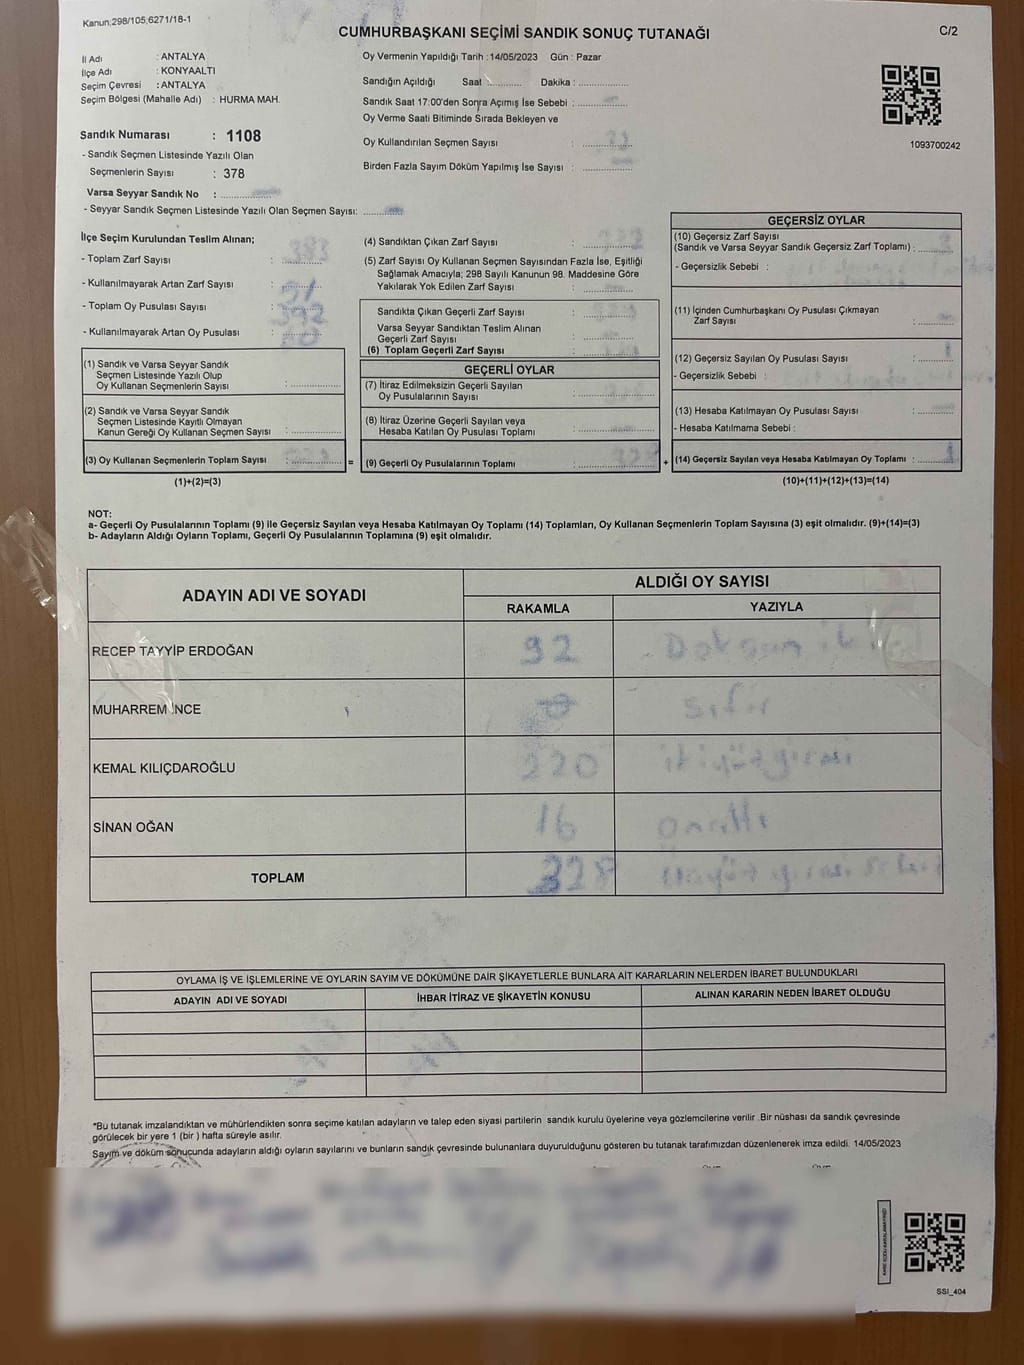 Kanun:298/105,6271/18-1
CUMHURBAŞKANI SEÇİMİ SANDIK SONUÇ TUTANAĞI
C/2
İl Adı : ANTALYA
İlçe Adı : KONYAALTI
Seçim Çevresi : ANTALYA
Seçim Bölgesi (Mahalle Adı) : HURMA MAH.
Sandık Numarası : 1108
- Sandık Seçmen Listesinde Yazılı Olan
Seçmenlerin Sayısı : 378
Varsa Seyyar Sandık No :
- Seyyar Sandık Seçmen Listesinde Yazılı Olan Seçmen Sayısı:
Oy Vermenin Yapıldığı Tarih :14/05/2023 Gün : Pazar
Sandığın Açıldığı Saat Dakika :
Sandık Saat 17:00'den Sonra Açımış İse Sebebi :
Oy Verme Saati Bitiminde Sırada Bekleyen ve
Oy Kullandırılan Seçmen Sayısı :
Birden Fazla Sayım Döküm Yapılmış İse Sayısı :
1093700242
İlçe Seçim Kurulundan Teslim Alınan;
- Toplam Zarf Sayısı : 383
- Kullanılmayarak Artan Zarf Sayısı :
- Toplam Oy Pusulası Sayısı :
- Kullanılmayarak Artan Oy Pusulası :
(1) Sandık ve Varsa Seyyar Sandık
Seçmen Listesinde Yazılı Olup
Oy Kullanan Seçmenlerin Sayısı :
(2) Sandık ve Varsa Seyyar Sandık
Seçmen Listesinde Kayıtlı Olmayan
Kanun Gereği Oy Kullanan Seçmen Sayısı :
(3) Oy Kullanan Seçmenlerin Toplam Sayısı : =
(1)+(2)=(3)
(4) Sandıktan Çıkan Zarf Sayısı :
(5) Zarf Sayısı Oy Kullanan Seçmen Sayısından Fazla İse, Eşitliği
Sağlamak Amacıyla; 298 Sayılı Kanunun 98. Maddesine Göre
Yakılarak Yok Edilen Zarf Sayısı :
Sandıkta Çıkan Geçerli Zarf Sayısı :
Varsa Seyyar Sandıktan Teslim Alınan
Geçerli Zarf Sayısı :
(6) Toplam Geçerli Zarf Sayısı :
GEÇERLİ OYLAR
(7) İtiraz Edilmeksizin Geçerli Sayılan
Oy Pusulalarının Sayısı :
(8) İtiraz Üzerine Geçerli Sayılan veya
Hesaba Katılan Oy Pusulası Toplamı :
(9) Geçerli Oy Pusulalarının Toplamı : 328 +
GEÇERSİZ OYLAR
(10) Geçersiz Zarf Sayısı
(Sandık ve Varsa Seyyar Sandık Geçersiz Zarf Toplamı) :
- Geçersizlik Sebebi :
(11) İçinden Cumhurbaşkanı Oy Pusulası Çıkmayan
Zarf Sayısı :
(12) Geçersiz Sayılan Oy Pusulası Sayısı : 1
- Geçersizlik Sebebi :
(13) Hesaba Katılmayan Oy Pusulası Sayısı :
- Hesaba Katılmama Sebebi :
(14) Geçersiz Sayılan veya Hesaba Katılmayan Oy Toplamı :
(10)+(11)+(12)+(13)=(14)
NOT:
a- Geçerli Oy Pusulalarının Toplamı (9) ile Geçersiz Sayılan veya Hesaba Katılmayan Oy Toplamı (14) Toplamları, Oy Kullanan Seçmenlerin Toplam Sayısına (3) eşit olmalıdır. (9)+(14)=(3)
b- Adayların Aldığı Oyların Toplamı, Geçerli Oy Pusulalarının Toplamına (9) eşit olmalıdır.
ADAYIN ADI VE SOYADI
ALDIĞI OY SAYISI
RAKAMLA YAZIYLA
RECEP TAYYİP ERDOĞAN 92 Doksan iki
MUHARREM İNCE 0 sıfır
KEMAL KILIÇDAROĞLU 220 ikiyüzyirmi
SİNAN OĞAN 16 Onaltı
TOPLAM 328 üçyüz yirmi sekiz
OYLAMA İŞ VE İŞLEMLERİNE VE OYLARIN SAYIM VE DÖKÜMÜNE DAİR ŞİKAYETLERLE BUNLARA AİT KARARLARIN NELERDEN İBARET BULUNDUKLARI
ADAYIN ADI VE SOYADI İHBAR İTİRAZ VE ŞİKAYETİN KONUSU ALINAN KARARIN NEDEN İBARET OLDUĞU
*Bu tutanak imzalandıktan ve mühürlendikten sonra seçime katılan adayların ve talep eden siyasi partilerin sandık kurulu üyelerine veya gözlemcilerine verilir. Bir nüshası da sandık çevresinde
görülecek bir yere 1 (bir ) hafta süreyle asılır.
Sayım ve döküm sonucunda adayların aldığı oyların sayılarını ve bunların sandık çevresinde bulunanlara duyurulduğunu gösteren bu tutanak tarafımızdan düzenlenerek imza edildi. 14/05/2023
SSI_404